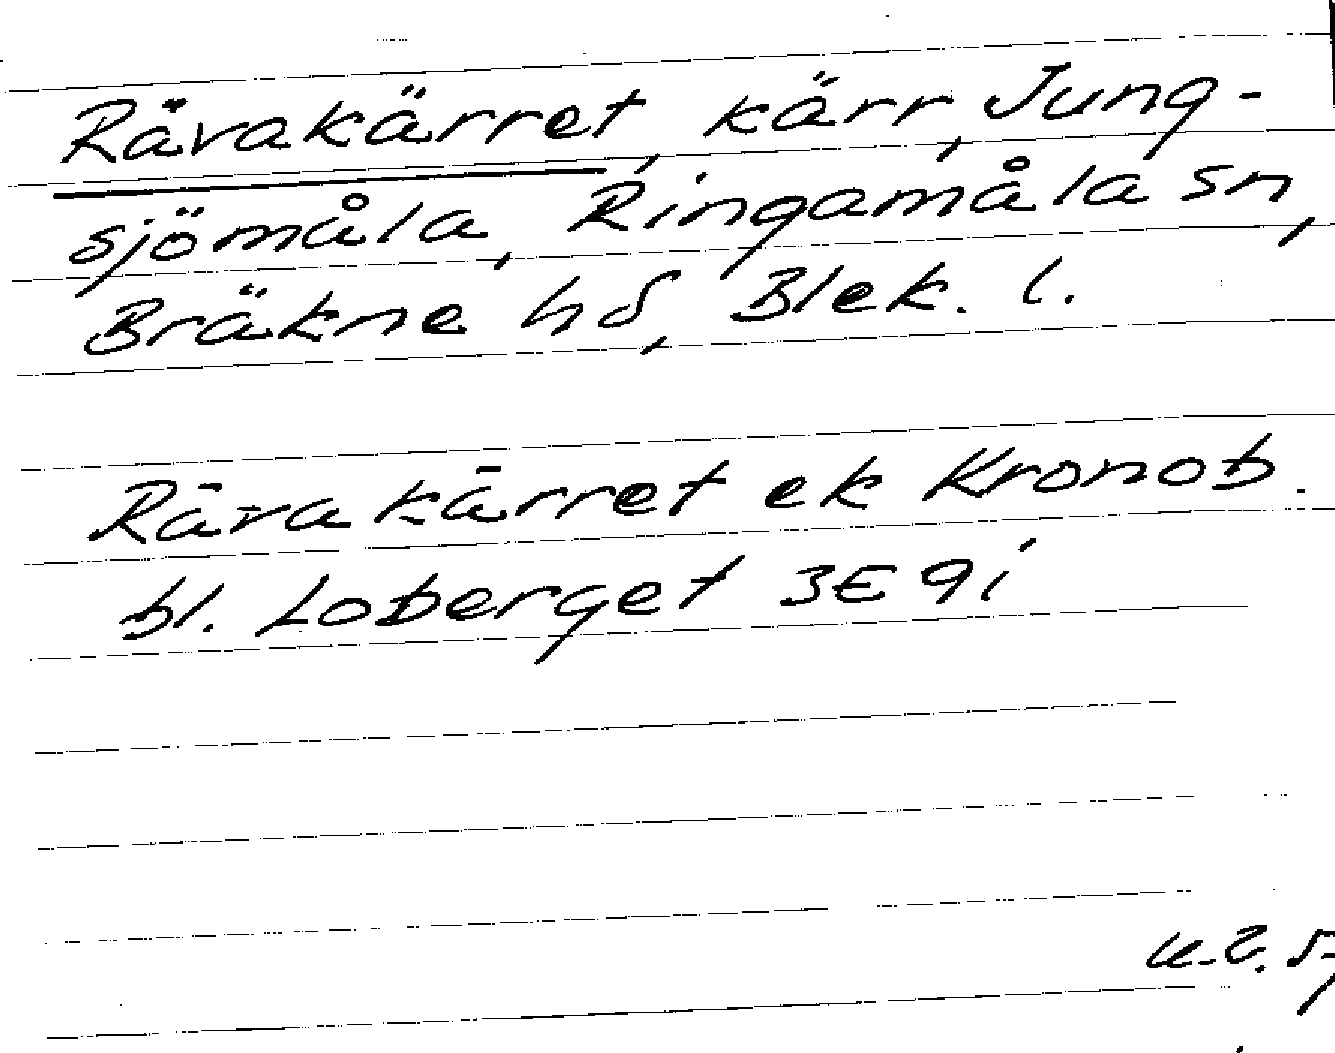 Rävakärret, kärr, Jung-
sjömåla, Ringamåla sn,
Bräkne hd, Blek. l.
Rävakärret ek Kronob.
bl. Loberget 3E 9i